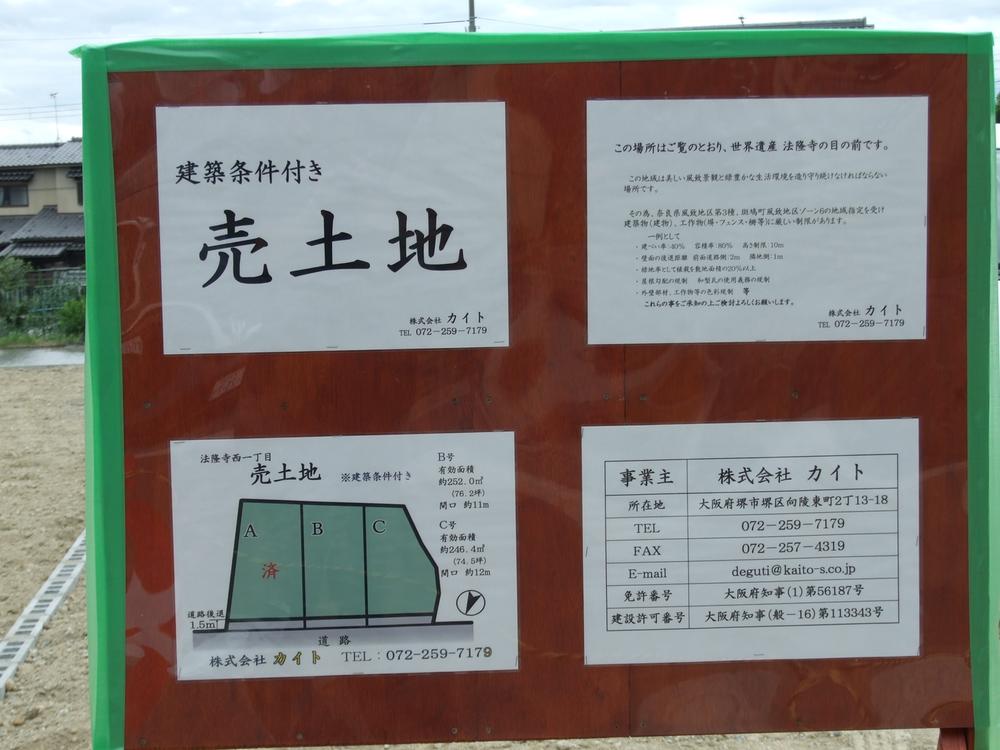 建築条件付き
売土地
株式会社 カイト
TEL 072-259-7179
この場所はご覧のとおり、世界遺産 法隆寺の目の前です。
この地域は美しい風致景観と緑豊かな生活環境を造り守り続けなければならない
場所です。
その為、奈良県風致地区第3種、斑鳩町風致地区ゾーン6の地域指定を受け
建築物(建物)、工作物(塀・フェンス・柵等)に厳しい制限があります。
一例として
・建ぺい率:40% 容積率:80% 高さ制限:10m
・壁面の後退距離 前面道路側:2m 隣地側:1m
・緑地率として植栽を敷地面積の20%以上
・屋根勾配の規制 和型瓦の使用義務の規制
・外壁部材、工作物等の色彩規制 等
これらの事をご承知の上ご検討よろしくお願いします。
株式会社 カイト
TEL 072-259-7179
法隆寺西一丁目
売土地 ※建築条件付き
B号
有効面積
約252.0㎡
(76.2坪)
間口 約11m
C号
有効面積
約246.4㎡
(74.5坪)
間口 約12m
A
B
C
済
道路後退
1.5m
道路
株式会社 カイト TEL:072-259-7179
事業主 株式会社 カイト
所在地 大阪府堺市堺区向陵東町2丁13-18
TEL 072-259-7179
FAX 072-257-4319
E-mail deguti@kaito-s.co.jp
免許番号 大阪府知事(1)第56187号
建設許可番号 大阪府知事(般-16)第113343号